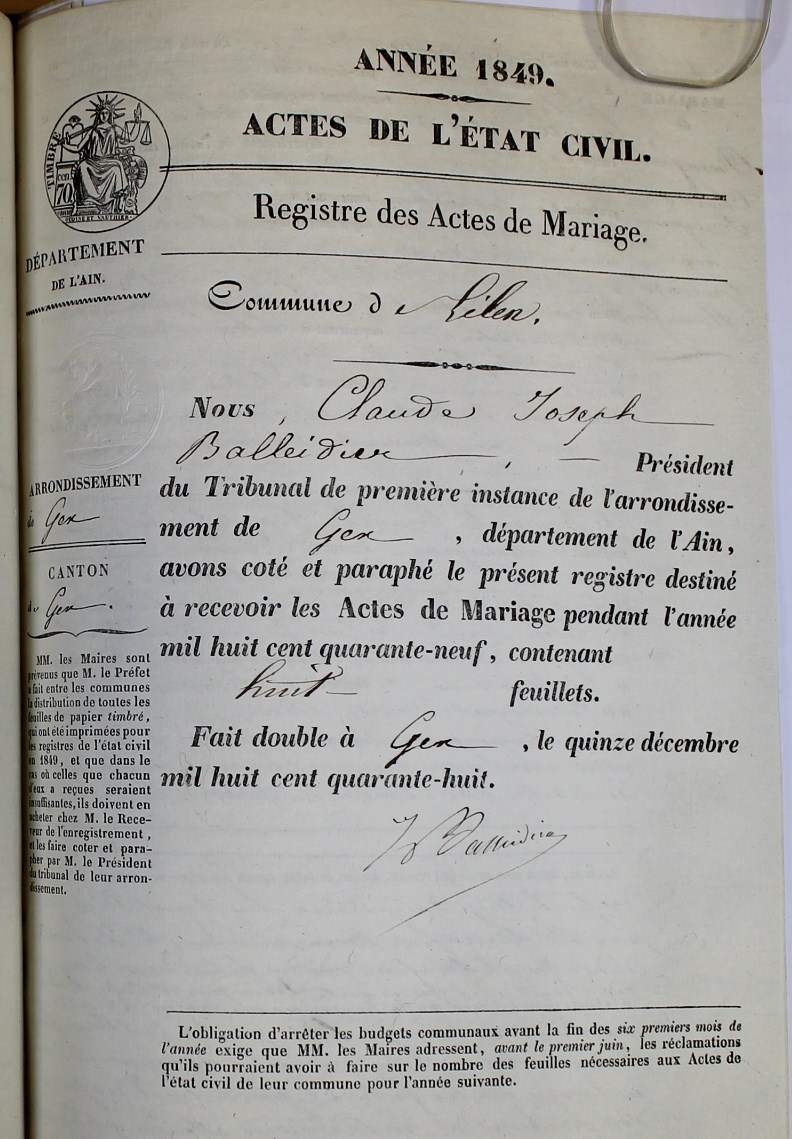 ANNÉE 1849.
ACTES DE L'ÉTAT CIVIL.
TIMBRE
cen
70
DÉPARTEMENT
DE L'AIN.
Registre des Actes de Mariage.
Commune de Lélex.
Nous, Claude Joseph
Balleidier, Président
du Tribunal de première instance de l'arrondisse-
ment de Gex, département de l'Ain,
avons coté et paraphé le présent registre destiné
à recevoir les Actes de Mariage pendant l'année
mil huit cent quarante-neuf, contenant
huit feuillets.
Fait double à Gex, le quinze décembre
mil huit cent quarante-huit.
Balleidier
ARRONDISSEMENT
de Gex
CANTON
de Gex.
MM. les Maires sont
prévenus que M. le Préfet
a fait entre les communes
la distribution de toutes les
feuilles de papier timbré,
qui ont été imprimées pour
les registres de l'état civil
en 1849, et que dans le
cas où celles que chacun
d'eux a reçues seraient
insuffisantes, ils doivent en
acheter chez M. le Rece-
veur de l'enregistrement,
et les faire coter et para-
pher par M. le Président
du tribunal de leur arron-
dissement.
L'obligation d'arrêter les budgets communaux avant la fin des six premiers mois de
l'année exige que MM. les Maires adressent, avant le premier juin, les réclamations
qu'ils pourraient avoir à faire sur le nombre des feuilles nécessaires aux Actes de
l'état civil de leur commune pour l'année suivante.